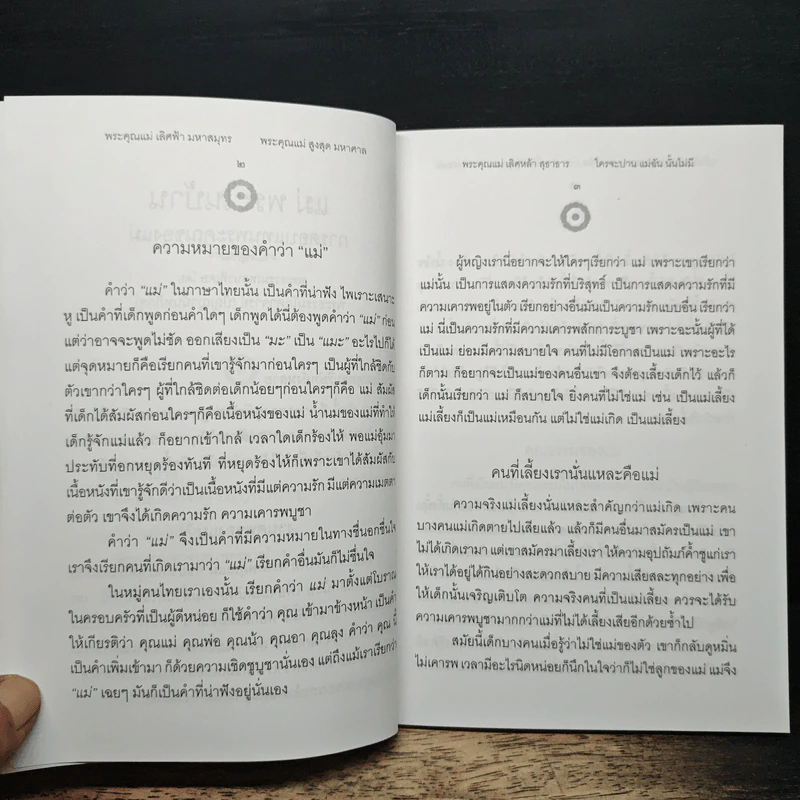 พระคุณแม่ เลิศฟ้า มหาสมุทร พระคุณแม่ สูงสุด มหาศาล
๒
ความหมายของคำว่า “แม่”
คำว่า “แม่” ในภาษาไทยนั้น เป็นคำที่น่าฟัง ไพเราะเสนาะ
หู เป็นคำที่เด็กพูดก่อนคำใดๆ เด็กพูดได้นี่ต้องพูดคำว่า “แม่” ก่อน
แต่ว่าอาจจะพูดไม่ชัด ออกเสียงเป็น “มะ” เป็น “แมะ” อะไรไปก็ได้
แต่จุดหมายก็คือเรียกคนที่เขารู้จักมาก่อนใครๆ เป็นผู้ที่ใกล้ชิดกับ
ตัวเขากว่าใครๆ ผู้ที่ใกล้ชิดต่อเด็กน้อยๆก่อนใครก็คือ แม่ สัมผัส
ที่เด็กได้สัมผัสก่อนใครๆก็คือเนื้อหนังของแม่ น้ำนมของแม่ที่ทำให้
เด็กรู้จักแม่แล้ว ก็อยากเข้าใกล้ เวลาใดเด็กร้องไห้ พอแม่อุ้มมา
ประทับที่อกหยุดร้องทันที ที่หยุดร้องไห้ก็เพราะเขาได้สัมผัสกับ
เนื้อหนังที่เขารู้จักดีว่าเป็นเนื้อหนังที่มีแต่ความรัก มีแต่ความเมตตา
ต่อตัว เขาจึงได้เกิดความรัก ความเคารพบูชา
คำว่า “แม่” จึงเป็นคำที่มีความหมายในทางชื่นอกชื่นใจ
เราจึงเรียกคนที่เกิดเรามาว่า “แม่” เรียกคำอื่นมันก็ไม่ชื่นใจ
ในหมู่คนไทยเราเองนั้น เรียกคำว่า แม่ มาตั้งแต่โบราณ
ในครอบครัวที่เป็นผู้ดีหน่อย ก็ใช้คำว่า คุณ เข้ามาข้างหน้า เป็นคำ
ให้เกียรติว่า คุณแม่ คุณพ่อ คุณน้า คุณอา คุณลุง คำว่า คุณ นี้
เป็นคำเพิ่มเข้ามา ก็ด้วยความเชิดชูบูชานั่นเอง แต่ถึงแม้เราเรียกว่า
“แม่” เฉยๆ มันก็เป็นคำที่น่าฟังอยู่นั่นเอง
พระคุณแม่ เลิศหล้า สุธาธาร ใครจะปาน แม่ฉัน นั้นไม่มี
๓
ผู้หญิงเรานี่อยากจะให้ใครๆเรียกว่า แม่ เพราะเขาเรียกว่า
แม่นั้น เป็นการแสดงความรักที่บริสุทธิ์ เป็นการแสดงความรักที่มี
ความเคารพอยู่ในตัว เรียกอย่างอื่นมันเป็นความรักแบบอื่น เรียกว่า
แม่ นี่เป็นความรักที่มีความเคารพสักการะบูชา เพราะฉะนั้นผู้ที่ได้
เป็นแม่ ย่อมมีความสบายใจ คนที่ไม่มีโอกาสเป็นแม่ เพราะอะไร
ก็ตาม ก็อยากจะเป็นแม่ของคนอื่นเขา จึงต้องเลี้ยงเด็กไว้ แล้วก็
เด็กนั้นเรียกว่า แม่ ก็สบายใจ ยิ่งคนที่ไม่ใช่แม่ เช่น เป็นแม่เลี้ยง
แม่เลี้ยงก็เป็นแม่เหมือนกัน แต่ไม่ใช่แม่เกิด เป็นแม่เลี้ยง
คนที่เลี้ยงเรานั่นแหละคือแม่
ความจริงแม่เลี้ยงนั่นแหละสำคัญกว่าแม่เกิด เพราะคน
บางคนแม่เกิดตายไปเสียแล้ว แล้วก็มีคนอื่นมาสมัครเป็นแม่ เขา
ไม่ได้เกิดเรามา แต่เขาสมัครมาเลี้ยงเรา ให้ความอุปถัมภ์ค้ำชูแก่เรา
ให้เราได้อยู่ได้กินอย่างสะดวกสบาย มีความเสียสละทุกอย่าง เพื่อ
ให้เด็กนั้นเจริญเติบโต ความจริงคนที่เป็นแม่เลี้ยง ควรจะได้รับ
ความเคารพบูชามากกว่าแม่ที่ไม่ได้เลี้ยงเสียอีกด้วยซ้ำไป
สมัยนี้เด็กบางคนเมื่อรู้ว่าไม่ใช่แม่ของตัว เขาก็กลับดูหมิ่น
ไม่เคารพ เวลามีอะไรนิดหน่อยก็นึกในใจว่าก็ไม่ใช่ลูกของแม่ แม่จึง